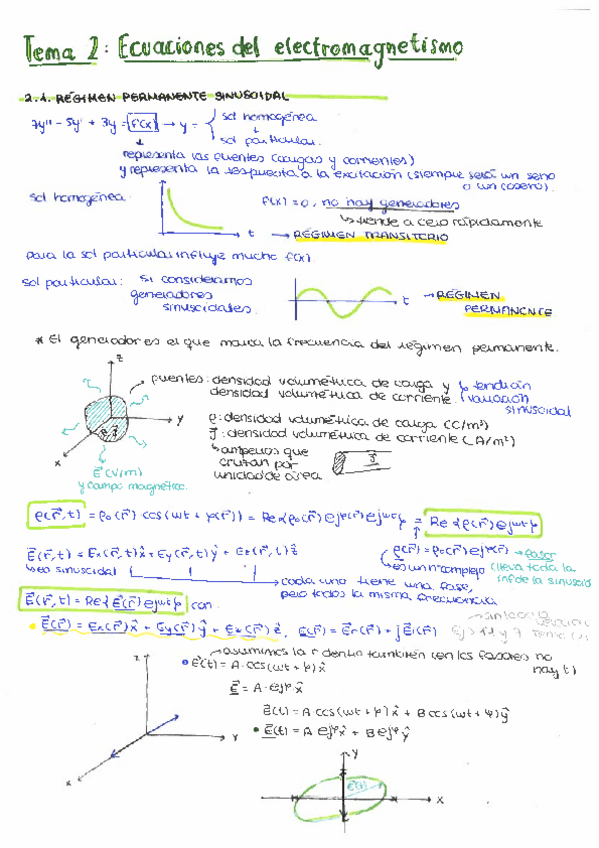 Tema 2: Ecuaciones del electromagnetismo
2.1. RÉGIMEN PERMANENTE SINUSOIDAL
7y'' - 5y' + 3y = f(x) → y = { sol homogénea
+
sol particular.
representa las fuentes (cargas y corrientes)
y representa la respuesta a la excitación (siempre será un seno
o un coseno).
sol homogénea
f(x) = 0, no hay generadores
↳ tiende a cero rápidamente
t → RÉGIMEN TRANSITORIO
para la sol particular influye mucho f(x)
sol particular: si consideramos
generadores
sinusoidales.
t → RÉGIMEN
PERMANENTE
* El generador es el que marca la frecuencia del régimen permanente.
z
fuentes: densidad volumétrica de carga y
densidad volumétrica de corriente
tendrán
variación
sinusoidal
y
x
ρ, J
ρ: densidad volumétrica de carga (C/m³)
J: densidad volumétrica de corriente (A/m²)
↳ amperios que
cruzan por
unidad de área
J
E (V/m)
y campo magnético.
ρ(r,t) = ρ₀(r) cos(ωt + φ(r)) = Re{ρ₀(r) e^jφ(r) e^jωt} = Re{ρ(r) e^jωt}
E(r,t) = Ex(r,t)x̂ + Ey(r,t)ŷ + Ez(r,t)ẑ
ρ(r) = ρ₀(r) e^jφ(r) → fasor
↳ es sinusoidal
↳ es un nº complejo (lleva toda la
inf de la sinusoid
→ cada uno tiene una fase,
pero todos la misma frecuencia
E(r,t) = Re{E(r) e^jωt} con
• E(r) = Ex(r)x̂ + Ey(r)ŷ + Ez(r)ẑ, E(r) = Er(r) + jEi(r)
asumimos la r dentro también (en los fasores no
hay t)
• E(t) = A·cos(ωt + φ)x̂
E = A·e^jφ x̂
E(t) = A cos(ωt + φ)x̂ + B cos(ωt + ψ)ŷ
• E(t) = A e^jφ x̂ + B e^jψ ŷ
z
y
x
y
E(t)
x